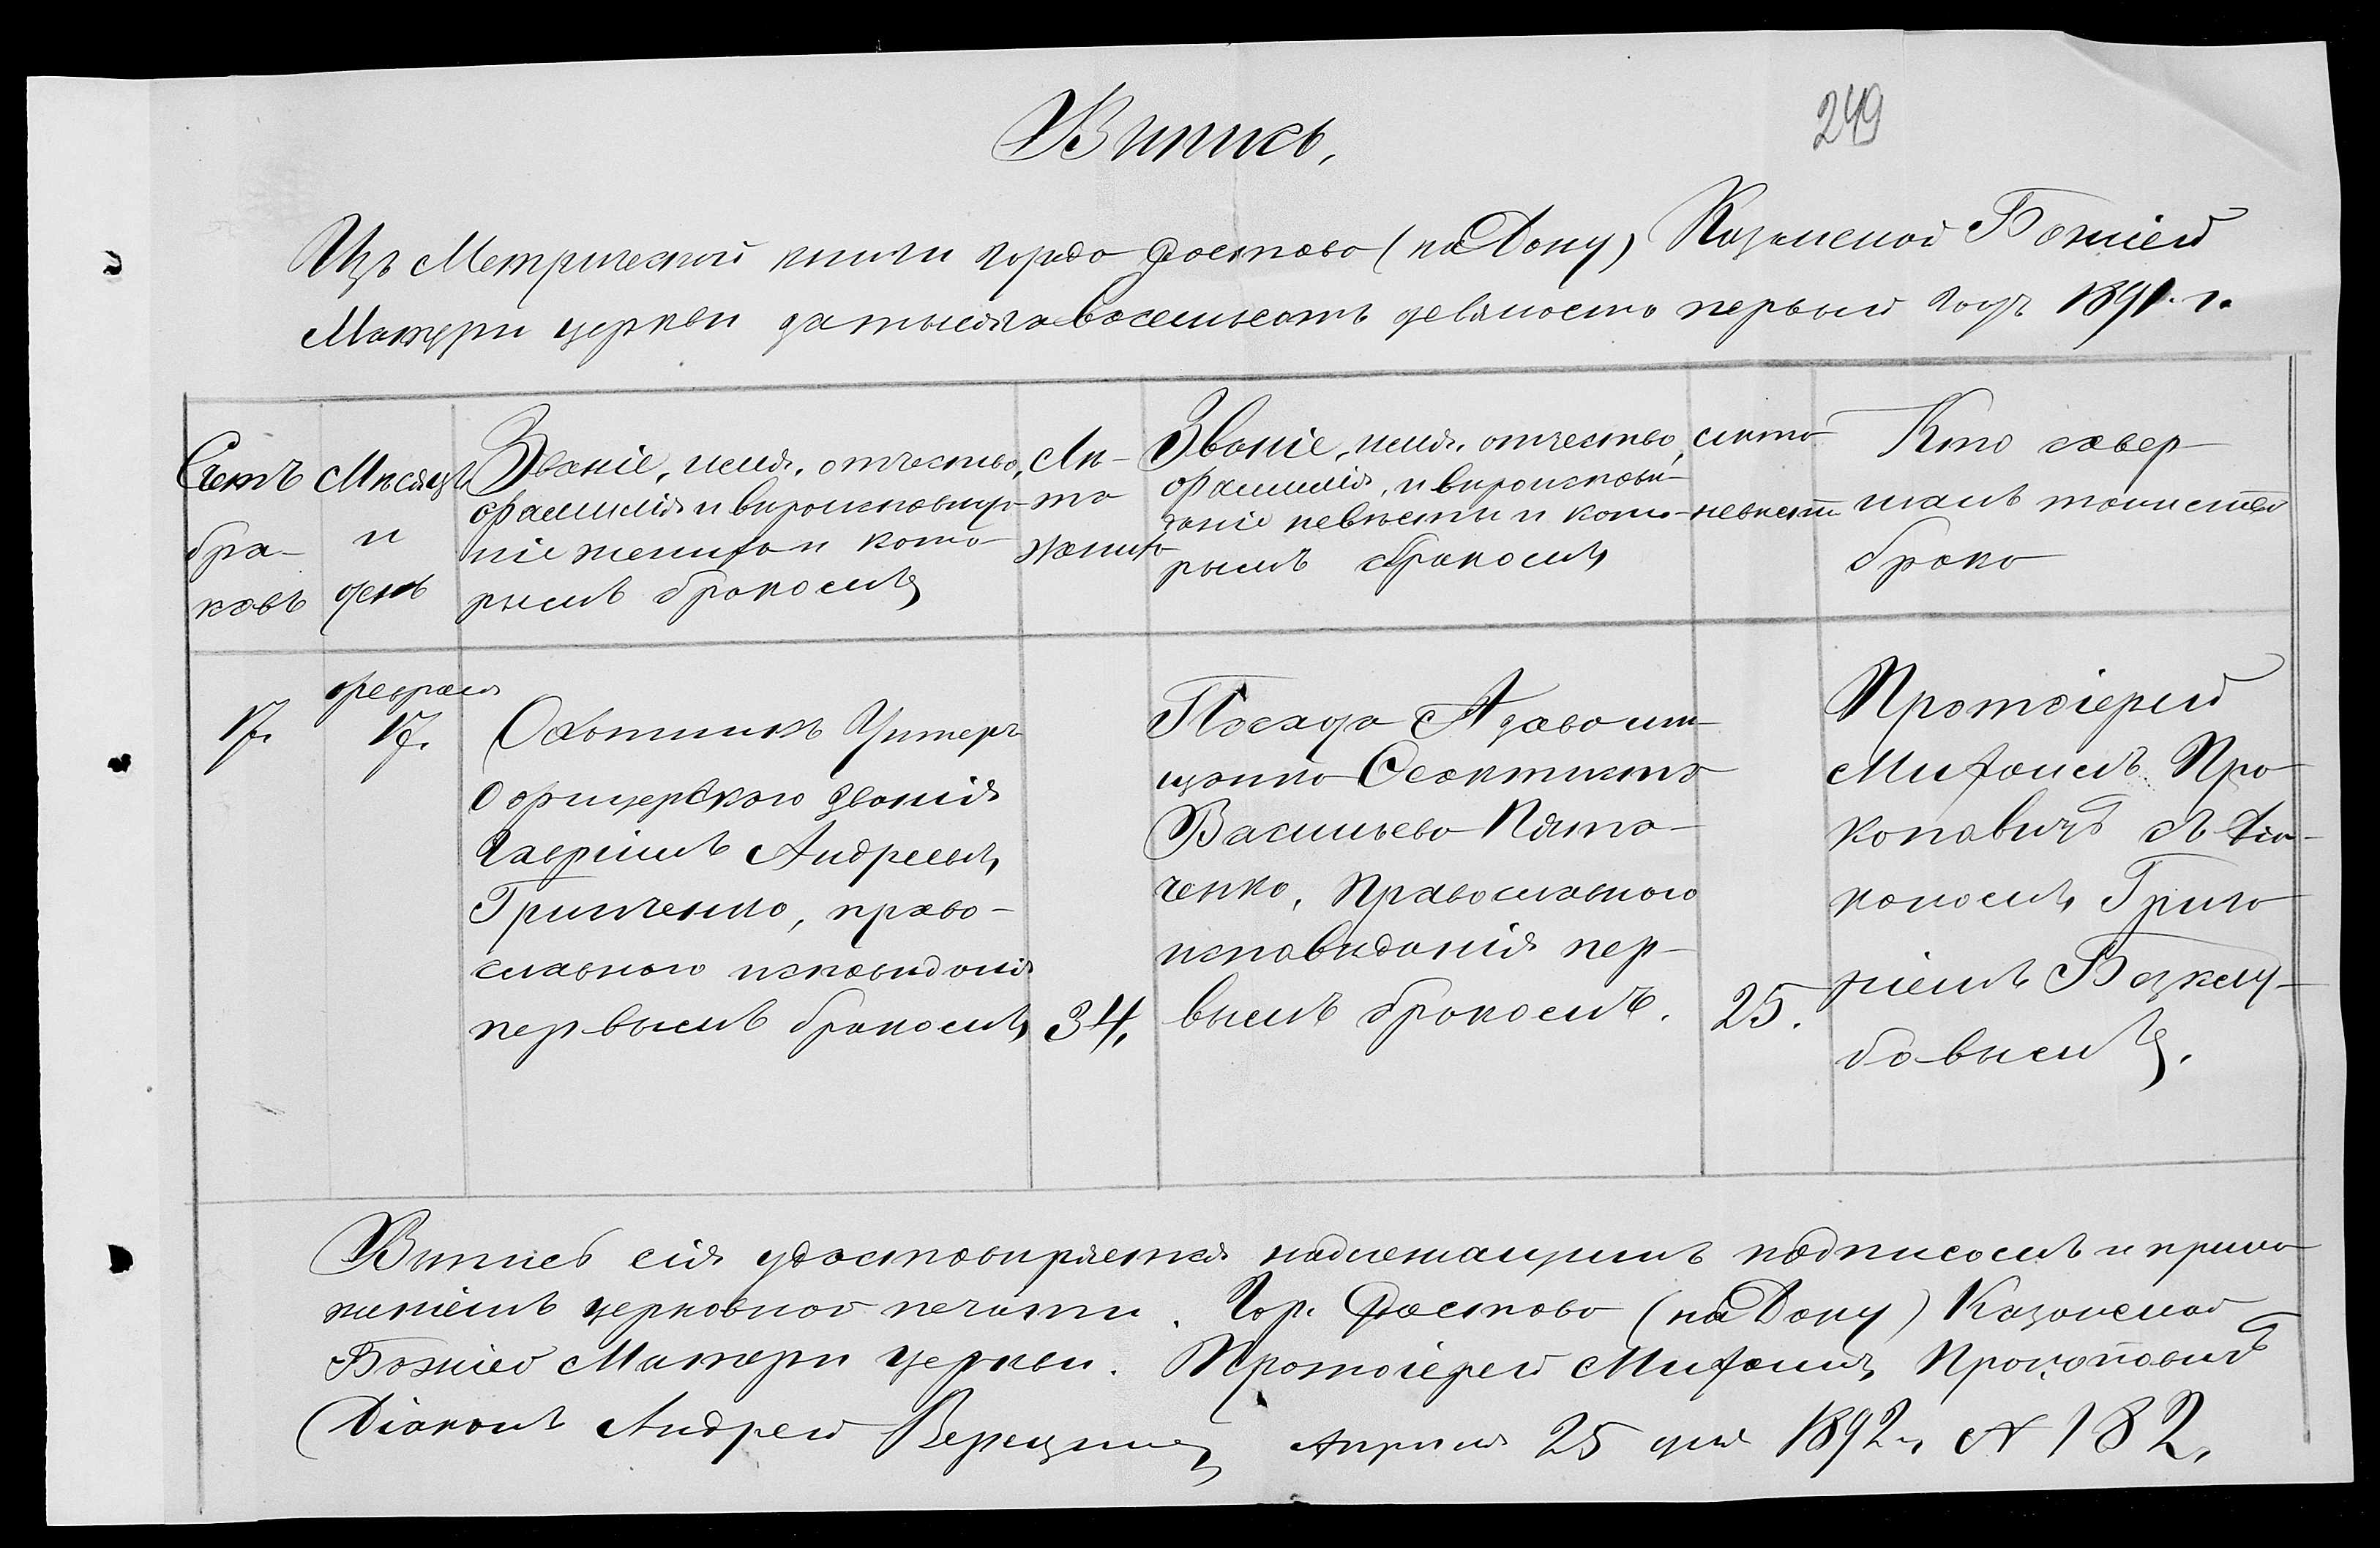 249
Випись,
Изъ Метрической книги города Ростова (на Дону) Казанской Божіей
Матери церкви за тысяча восемьсотъ девяносто первый годъ 1891. г.
Счетъ
бра-
ковъ
Мѣсяцъ
и
день
Званіе, имя, отчество,
фамилія и вѣроисповѣда-
ніе жениха и кото-
рымъ бракомъ
Лѣ-
та
жениха
Званіе, имя, отчество,
фамилія, и вѣроисповѣ-
даніе невѣсты и кото-
рымъ бракомъ
лѣта
невѣсты
Кто совер-
шалъ таинство
брака
17.
февраля
17.
Охотникъ Унтеръ
Офицерскаго званія
Гавріилъ Андреевъ
Гримченко, право-
славнаго исповѣданія
первымъ бракомъ
34,
Посада Азова мѣ-
щанка Феоктиста
Васильева Пято-
ченко, Православнаго
исповѣданія пер-
вымъ бракомъ.
25.
Протоіерей
Михаилъ Про-
коповичъ съ Діа-
кономъ Григо-
ріемъ
Випись сія удостовѣряется надлежащимъ подписомъ и прило-
женіемъ церковной печати. Гор. Ростова (на Дону) Казанской
Божіей Матери церкви. Протоіерей Михаилъ Прокоповичъ
Діаконъ Андрей Апрѣля 25 дня 1892 г. № 182,